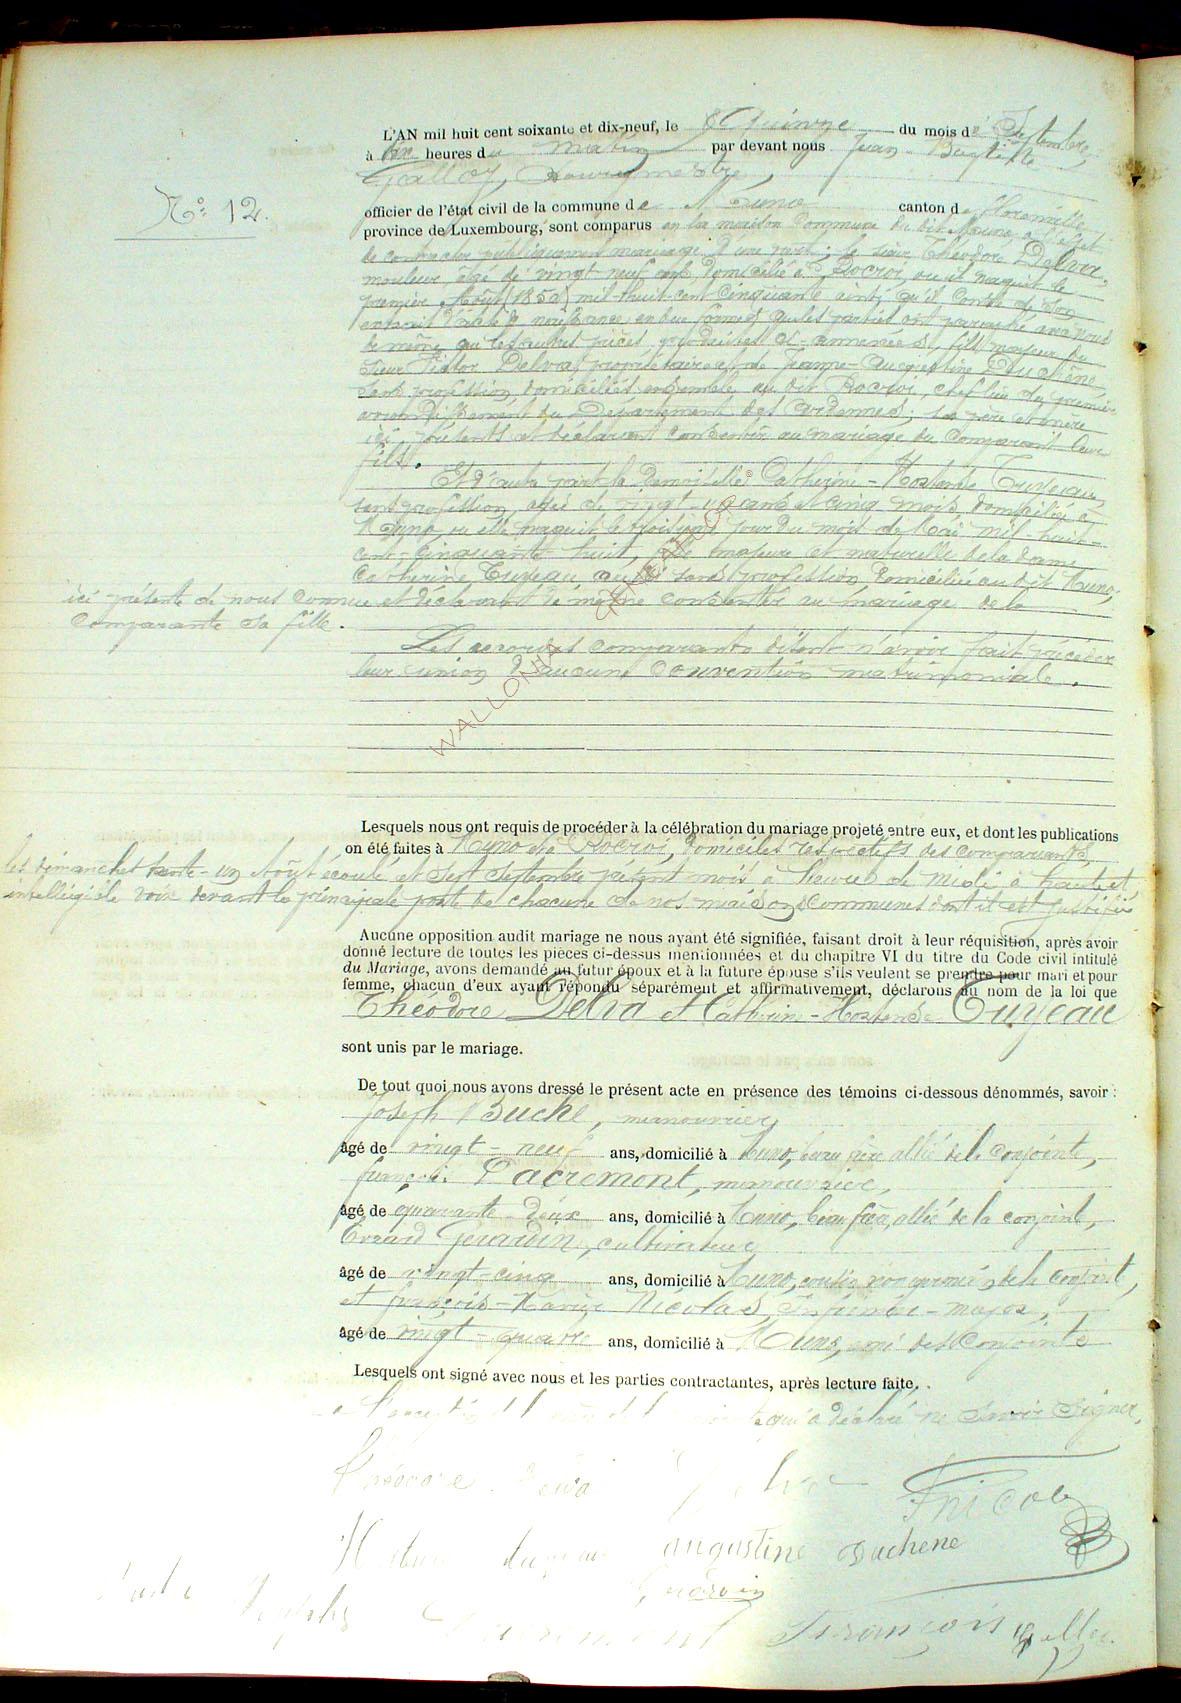 L'AN mil huit cent soixante et dix-neuf, le Quinze du mois de Septembre,
à dix heures du matin par devant nous Jean-Baptiste
Galloy, Bourgmestre,
N° 12.
officier de l'état civil de la commune de Muno canton de Florenville
province de Luxembourg, sont comparus en la maison commune du dit Muno, à l'effet
de contracter publiquement mariage. D'une part; le sieur Théodore Delva,
mouleur, âgé de vingt-neuf ans, domicilié à Rocroi, où il naquit le
premier Août (1850) mil-huit-cent cinquante ainsi qu'il conste de son
extrait d'acte de naissance, en due forme, que les parties ont paraphé avec nous
de même que les autres pièces produites et annexées, fils majeur du
sieur Victor Delva, propriétaire et de Jeanne-Augustine Duchêne,
sans profession, domiciliés ensemble au dit Rocroi, chef lieu du premier
arrondissement du Département des Ardennes; les père et mère
ici présents et déclarant consentir au mariage du comparant leur
fils.
Et d'autre part la Demoiselle Catherine-Hortense Tuzeau,
sans profession, âgée de vingt-un ans et cinq mois, domiciliée à
Muno où elle naquit le jour du mois de Mai mil-huit-
cent-cinquante-huit, fille majeure et naturelle de la dame
Catherine Tuzeau, aussi sans profession, domiciliée au dit Muno;
ici présente de nous connue et déclarant de même consentir au mariage de la
comparante sa fille.
Les comparants disent n'avoir fait précéder
leur union d'aucune convention matrimoniale.
WALLONIA
Lesquels nous ont requis de procéder à la célébration du mariage projeté entre eux, et dont les publications
on été faites à Muno et à Rocroi, domiciles respectifs des comparants,
les dimanches trente-un Août écoulé et sept Septembre présent mois à heures de midi, à haute et
intelligible voix devant la principale porte de chacune de nos maisons communes dont il est justifié
Aucune opposition audit mariage ne nous ayant été signifiée, faisant droit à leur réquisition, après avoir
donné lecture de toutes les pièces ci-dessus mentionnées et du chapitre VI du titre du Code civil intitulé
du Mariage, avons demandé au futur époux et à la future épouse s'ils veulent se prendre pour mari et pour
femme, chacun d'eux ayant répondu séparément et affirmativement, déclarons au nom de la loi que
Théodore Delva et Catherine-Hortense Tuzeau
sont unis par le mariage.
De tout quoi nous avons dressé le présent acte en présence des témoins ci-dessous dénommés, savoir :
Joseph Buché, manouvrier,
âgé de vingt-neuf ans, domicilié à Muno, beau frère allié de la conjointe,
françois Pacremont, manouvrier,
âgé de quarante-deux ans, domicilié à Muno, beau frère, allié de la conjointe,
Erard Gérardin, cultivateur,
âgé de vingt-cinq ans, domicilié à Muno, cousin de la conjointe,
et françois-Xavier Nicolas, Infirmier-major,
âgé de vingt-quatre ans, domicilié à Muno, ami des conjoints
Lesquels ont signé avec nous et les parties contractantes, après lecture faite.
à l'exception de la mère de la conjointe qui a déclaré ne savoir signer,
Théodore Delva Delva FNicolas
Hortense tuzeau augustine Duchene
Gérardin
Buché Joseph Pacremont François galloy